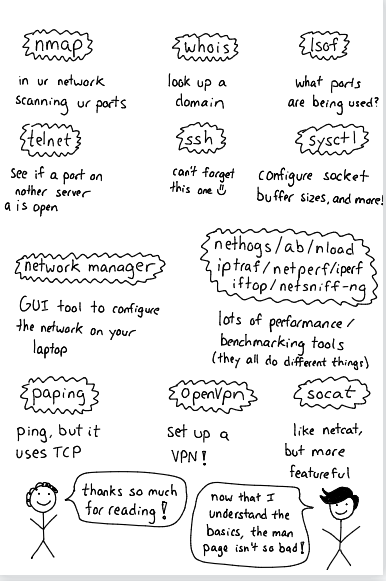 nmap
in ur network
scanning ur ports
whois
look up a
domain
lsof
what ports
are being used?
telnet
see if a port on
nother server
a is open
ssh
can't forget
this one
sysctl
configure socket
buffer sizes, and more!
network manager
GUI tool to configure
the network on your
laptop
nethogs/ab/nload
iptraf/netperf/iperf
iftop/netsniff-ng
lots of performance/
benchmarking tools
(they all do different things)
paping
ping, but it
uses TCP
openVpn
set up a
VPN!
socat
like netcat,
but more
featureful
thanks so much
for reading!
now that I
understand the
basics, the man
page isn't so bad!